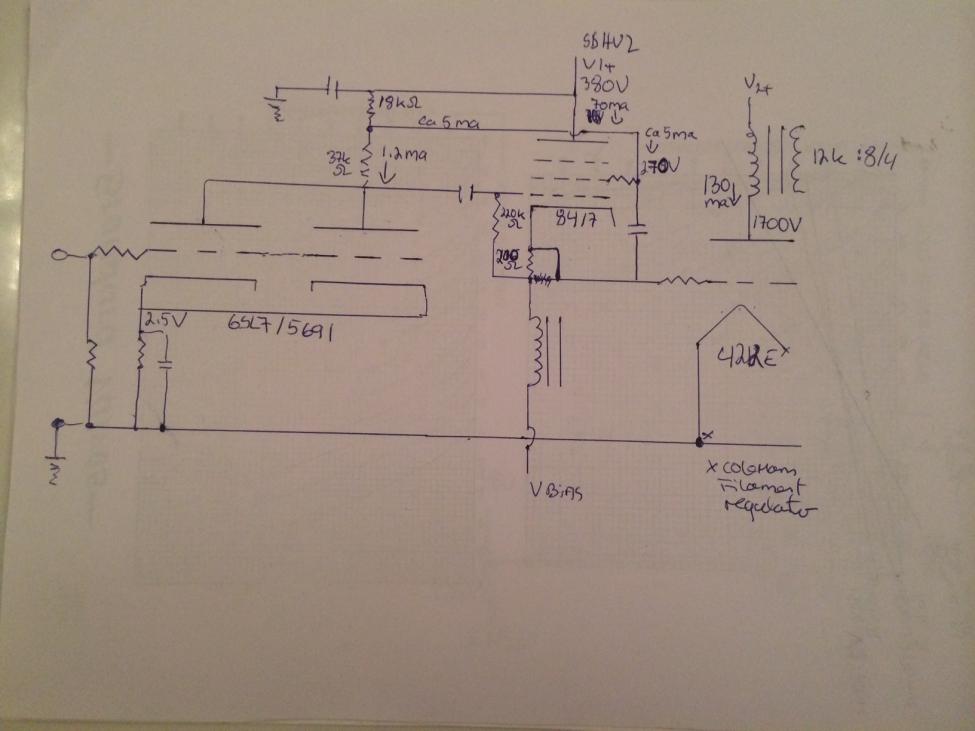 V1+
380V
70ma
18kΩ
ca 5ma
ca 5ma
270V
37k
Ω
1.2ma
V2+
12k :8/4
130
ma
1700V
220k
Ω
8417
200
Ω
2.5V
6SL7/5691
x
x
V Bias
x coleman
Filament
regulator